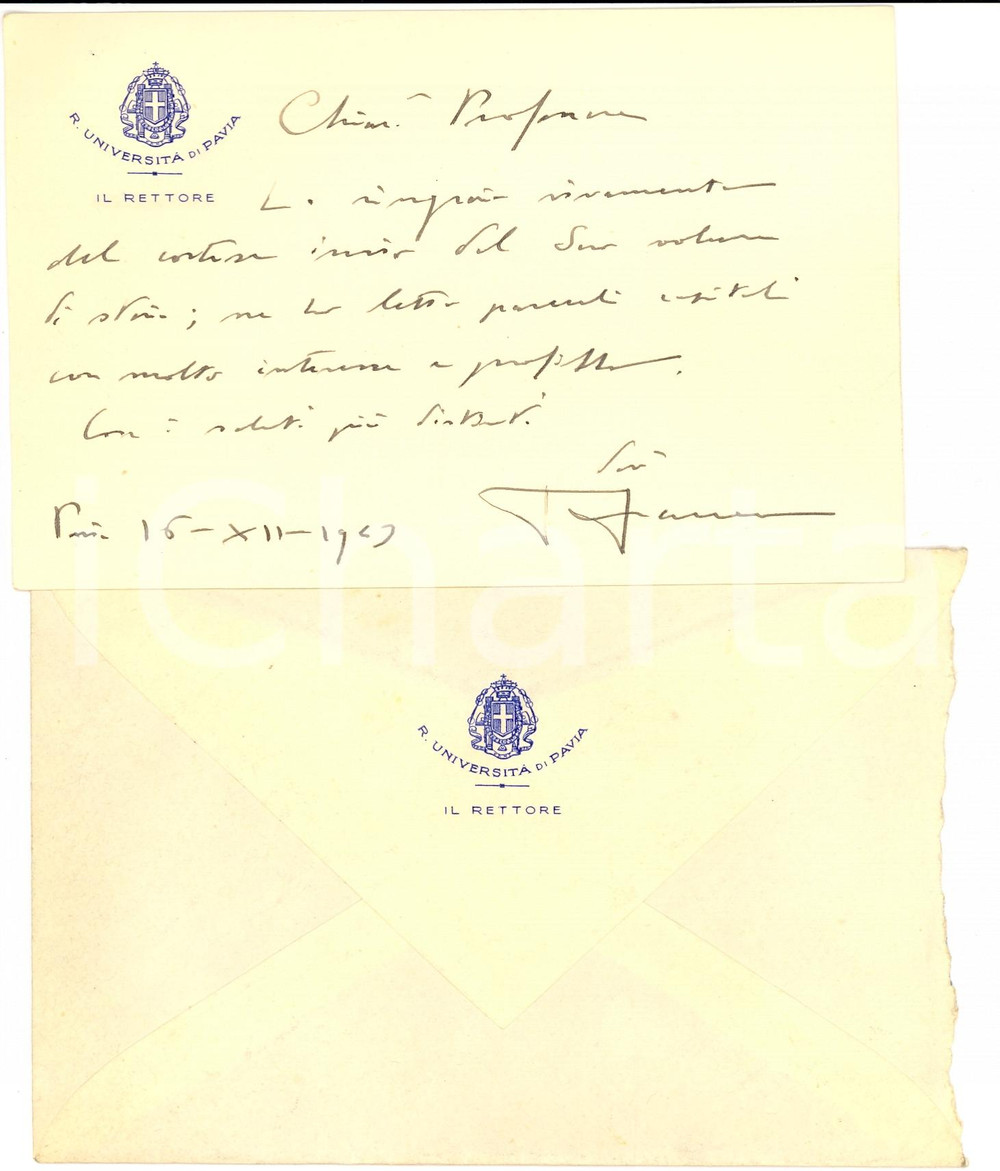 R. UNIVERSITÁ DI PAVIA
IL RETTORE
Chiar. Professore
La ringrazio vivamente
del cortese invio del Suo volume
di storia; ne ho letto parecchi capitoli
con molto interesse e profitto.
Con i saluti più distinti
Suo
Pavia 16-XII-1947
iCharta
R. UNIVERSITÁ DI PAVIA
IL RETTORE